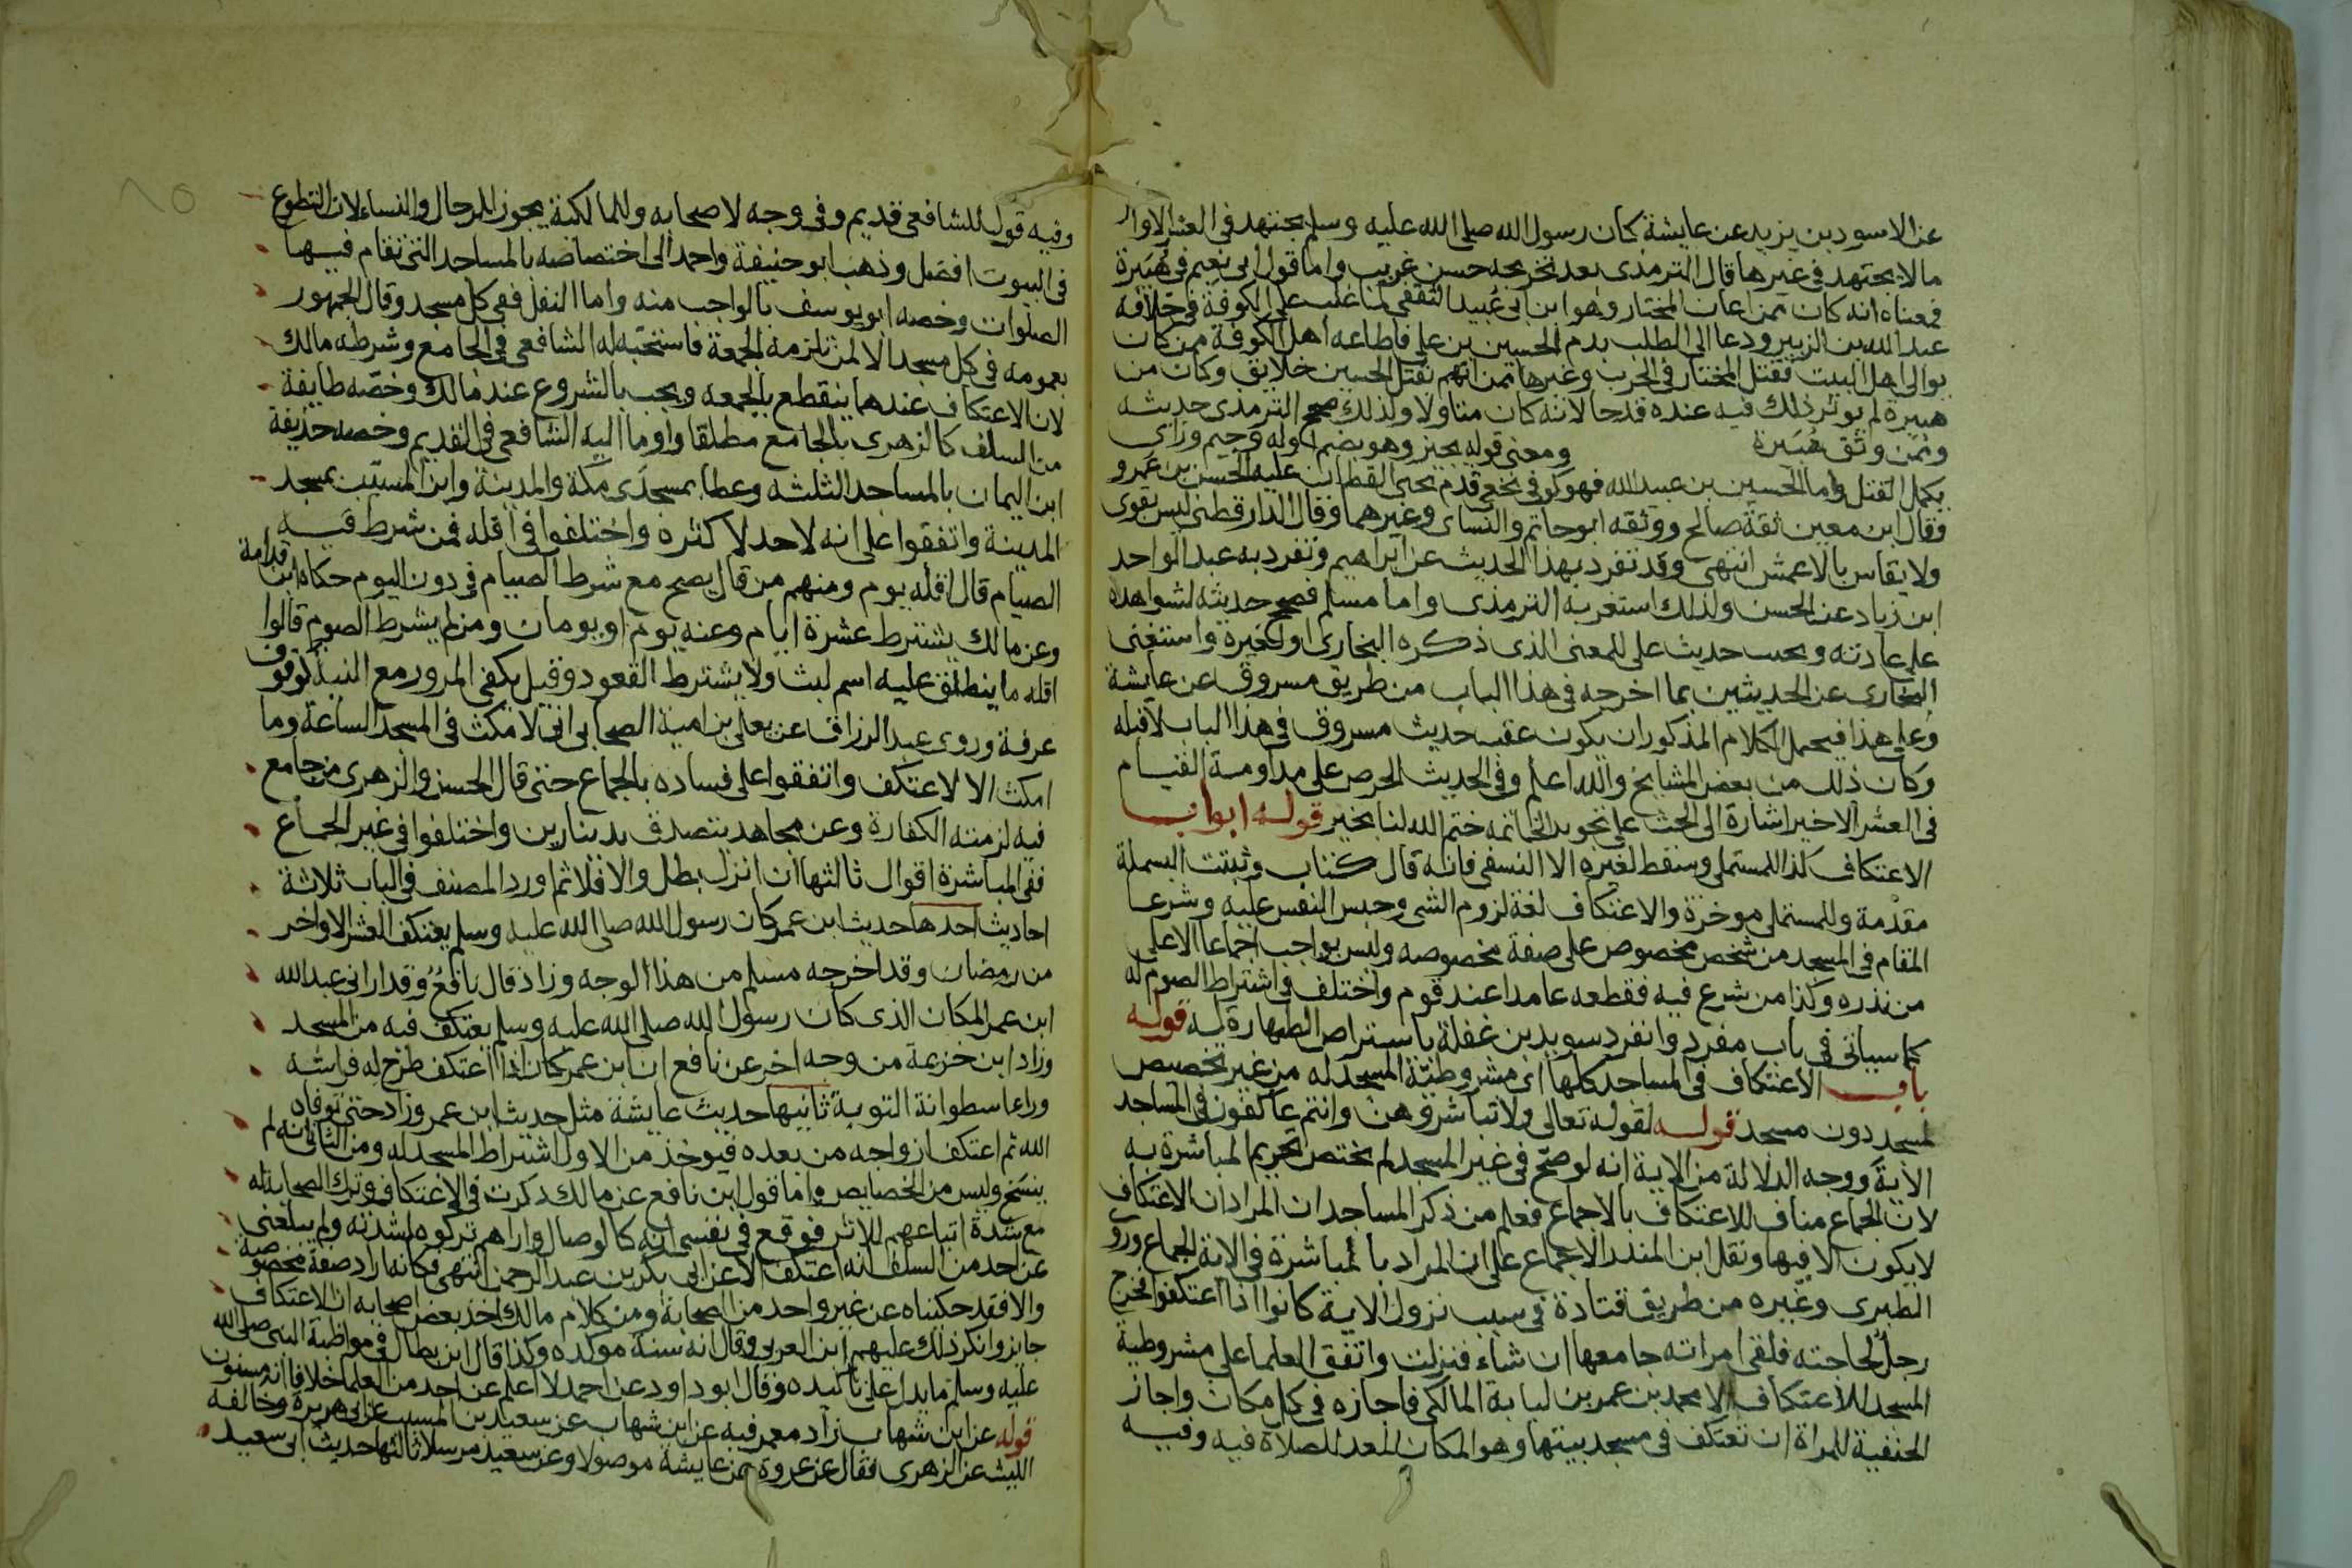 عن الاسود بن يزيد عن عايشة كان رسول الله صلى الله عليه وسلم يجتهد في العشر الاواخر
ما لا يجتهد في غيرها قال الترمذى بعد تخريجه حسن غريب واما قول ابى نعيم في هبيرة
فمعناه انه كان ممن اعان المختار وهو ابن ابى عبيد الثقفي لما غلب على الكوفة في خلافة
عبد الله بن الزبير ودعا الى الطلب بدم الحسين بن علي فاطاعه اهل الكوفة ممن كان
يوالى اهل البيت فقتل المختار في الحرب وغيرها ممن اتهم بقتل الحسين خلايق وكان من
هبيرة لم يوثر ذلك فيه عنده قدحا لانه كان متاولا ولذلك صحح الترمذى حديثه
وممن وثق هبيرة ومعنى قوله يجيز وهو بضم اوله وجيم وزاى
يكمل القتل واما الحسين بن عبيد الله فهو كوفي نخعي قدم يحيى القطان عليه الحسن بن عمرو
وقال ابن معين ثقة صالح ووثقه ابو حاتم والنساى وغيرهما وقال الدارقطني ليس بقوى
ولا يقاس بالاعمش انتهى وقد تفرد بهذا الحديث عن ابراهيم وتفرد به عبد الواحد
ابن زياد عن الحسن ولذلك استغربه الترمذى واما مسلم فصحح حديثه لشواهده
على عادته وتجنب حديث علي للمعنى الذى ذكره البخارى او لغيره واستغنى
البخارى عن الحديثين بما اخرجه في هذا الباب من طريق مسروق عن عايشة
وعلى هذا فيحمل الكلام المذكور ان يكون عقب حديث مسروق في هذا الباب لا قبله
وكان ذلك من بعض المشايخ والله اعلم وفي الحديث الحرص على مداومة القيام
في العشر الاخير اشارة الى الحث على تجويد الخاتمة ختم الله لنا بخير قوله ابواب
الاعتكاف كذا للمستملي وسقط لغيره الا النسفي فانه قال كتاب وثبتت البسملة
مقدمة وللمستملي موخرة والاعتكاف لغة لزوم الشى وحبس النفس عليه وشرعا
المقام في المسجد من شخص مخصوص على صفة مخصوصه وليس بواجب اجماعا الا على
من نذره وكذا من شرع فيه فقطعه عامدا عند قوم واختلف في اشتراط الصوم له
كما سياتى في باب مفرد وانفرد سويد بن غفلة باشتراط الطهارة له قوله
باب الاعتكاف في المساجد كلها اى مشروطية المسجد له من غير تخصيص
لمسجد دون مسجد قوله لقوله تعالى ولا تباشروهن وانتم عاكفون في المساجد
الاية ووجه الدلالة من الاية انه لو صح في غير المسجد لم يختص تحريم المباشرة به
لان الجماع مناف للاعتكاف بالاجماع فعلم من ذكر المساجد ان المراد ان الاعتكاف
لا يكون الا فيها ونقل ابن المنذر الاجماع على ان المراد بالمباشرة في الاية الجماع وروى
الطبرى وغيره من طريق قتادة في سبب نزول الاية كانوا اذا اعتكفوا فخرج
رجل لحاجته فلقى امراته جامعها ان شاء فنزلت واتفق العلما على مشروطية
المسجد للاعتكاف الا محمد بن عمر بن لبابة المالكي فاجازه في كل مكان واجاز
الحنفية للمراة ان تعتكف في مسجد بيتها وهو المكان المعد للصلاة فيه وفيه
وفيه قول للشافعي قديم وفي وجه لاصحابه وللمالكية يجوز للرجال والنساء لان التطوع
في البيوت افضل وذهب ابو حنيفة واحمد الى اختصاصه بالمساجد التى تقام فيها
الصلوات وخصه ابو يوسف بالواجب منه واما النفل ففي كل مسجد وقال الجمهور
بعمومه في كل مسجد الا لمن تلزمه الجمعة فاستحبه له الشافعي في الجامع وشرطه مالك
لان الاعتكاف عندهما ينقطع بالجمعه ويجب بالشروع عند مالك وخصه طايفة
من السلف كالزهرى بالجامع مطلقا واوما اليه الشافعي في القديم وخصه حذيفة
ابن اليمان بالمساجد الثلثه وعطا بمسجدى مكة والمدينة وابن المسيب بمسجد
المدينة واتفقوا على انه لاحد لاكثره واختلفوا في اقله فمن شرط فيه
الصيام قال اقله يوم ومنهم من قال يصح مع شرط الصيام في دون اليوم حكاه ابن قدامة
وعن مالك يشترط عشرة ايام وعنه يوم او يومان ومن لم يشرط الصوم قالوا
اقله ما ينطلق عليه اسم لبث ولا يشترط القعود وقيل يكفي المرور مع النية كوقوف
عرفة وروى عبد الرزاق عن يعلى بن امية الصحابى انى لامكث في المسجد الساعة وما
امكث الا لاعتكف واتفقوا على فساده بالجماع حتى قال الحسن والزهرى من جامع
فيه لزمته الكفارة وعن مجاهد يتصدق بدينارين واختلفوا في غير الجماع
ففي المباشرة اقوال ثالثها ان انزل بطل والا فلا ثم اورد المصنف في الباب ثلاثة
احاديث احدها حديث ابن عمر كان رسول الله صلى الله عليه وسلم يعتكف العشر الاواخر
من رمضان وقد اخرجه مسلم من هذا الوجه وزاد قال نافع وقد ارانى عبد الله
ابن عمر المكان الذى كان رسول الله صلى الله عليه وسلم يعتكف فيه من المسجد
وزاد ابن خزيمة من وجه اخر عن نافع ان ابن عمر كان اذا اعتكف طرح له فراشه
وراء اسطوانة التوبة ثانيها حديث عايشة مثل حديث ابن عمر وزاد حتى توفاه
الله ثم اعتكف ازواجه من بعده فيوخذ من الاول اشتراط المسجد له ومن الثانى انه لم
ينسخ وليس من الخصايص واما قول ابن نافع عن مالك ذكرت في الاعتكاف وترك الصحابة له
مع شدة اتباعهم للاثر فوقع في نفسي انه كالوصال واراهم تركوه لشدته ولم يبلغنى
عن احد من السلف انه اعتكف الا عن ابى بكر بن عبد الرحمن انتهى فكانه اراد صفة مخصوصة
والا فقد حكيناه عن غير واحد من الصحابة ومن كلام مالك اخذ بعض اصحابه ان الاعتكاف
جايز وانكر ذلك عليهم ابن العربى وقال انه سنة موكده وكذا قال ابن بطال في مواظبة النبى صلى الله
عليه وسلم ما يدل على تاكيده وقال ابو داود عن احمد لا اعلم عن احد من العلما خلافا انه مسنون
قوله عن ابن شهاب زاد معمر فيه عن ابن شهاب عن سعيد بن المسيب عن ابى هريرة وخالفه
الليث عن الزهرى فقال عن عروة عن عايشة موصولا وعن سعيد مرسلا ثالثها حديث ابى سعيد